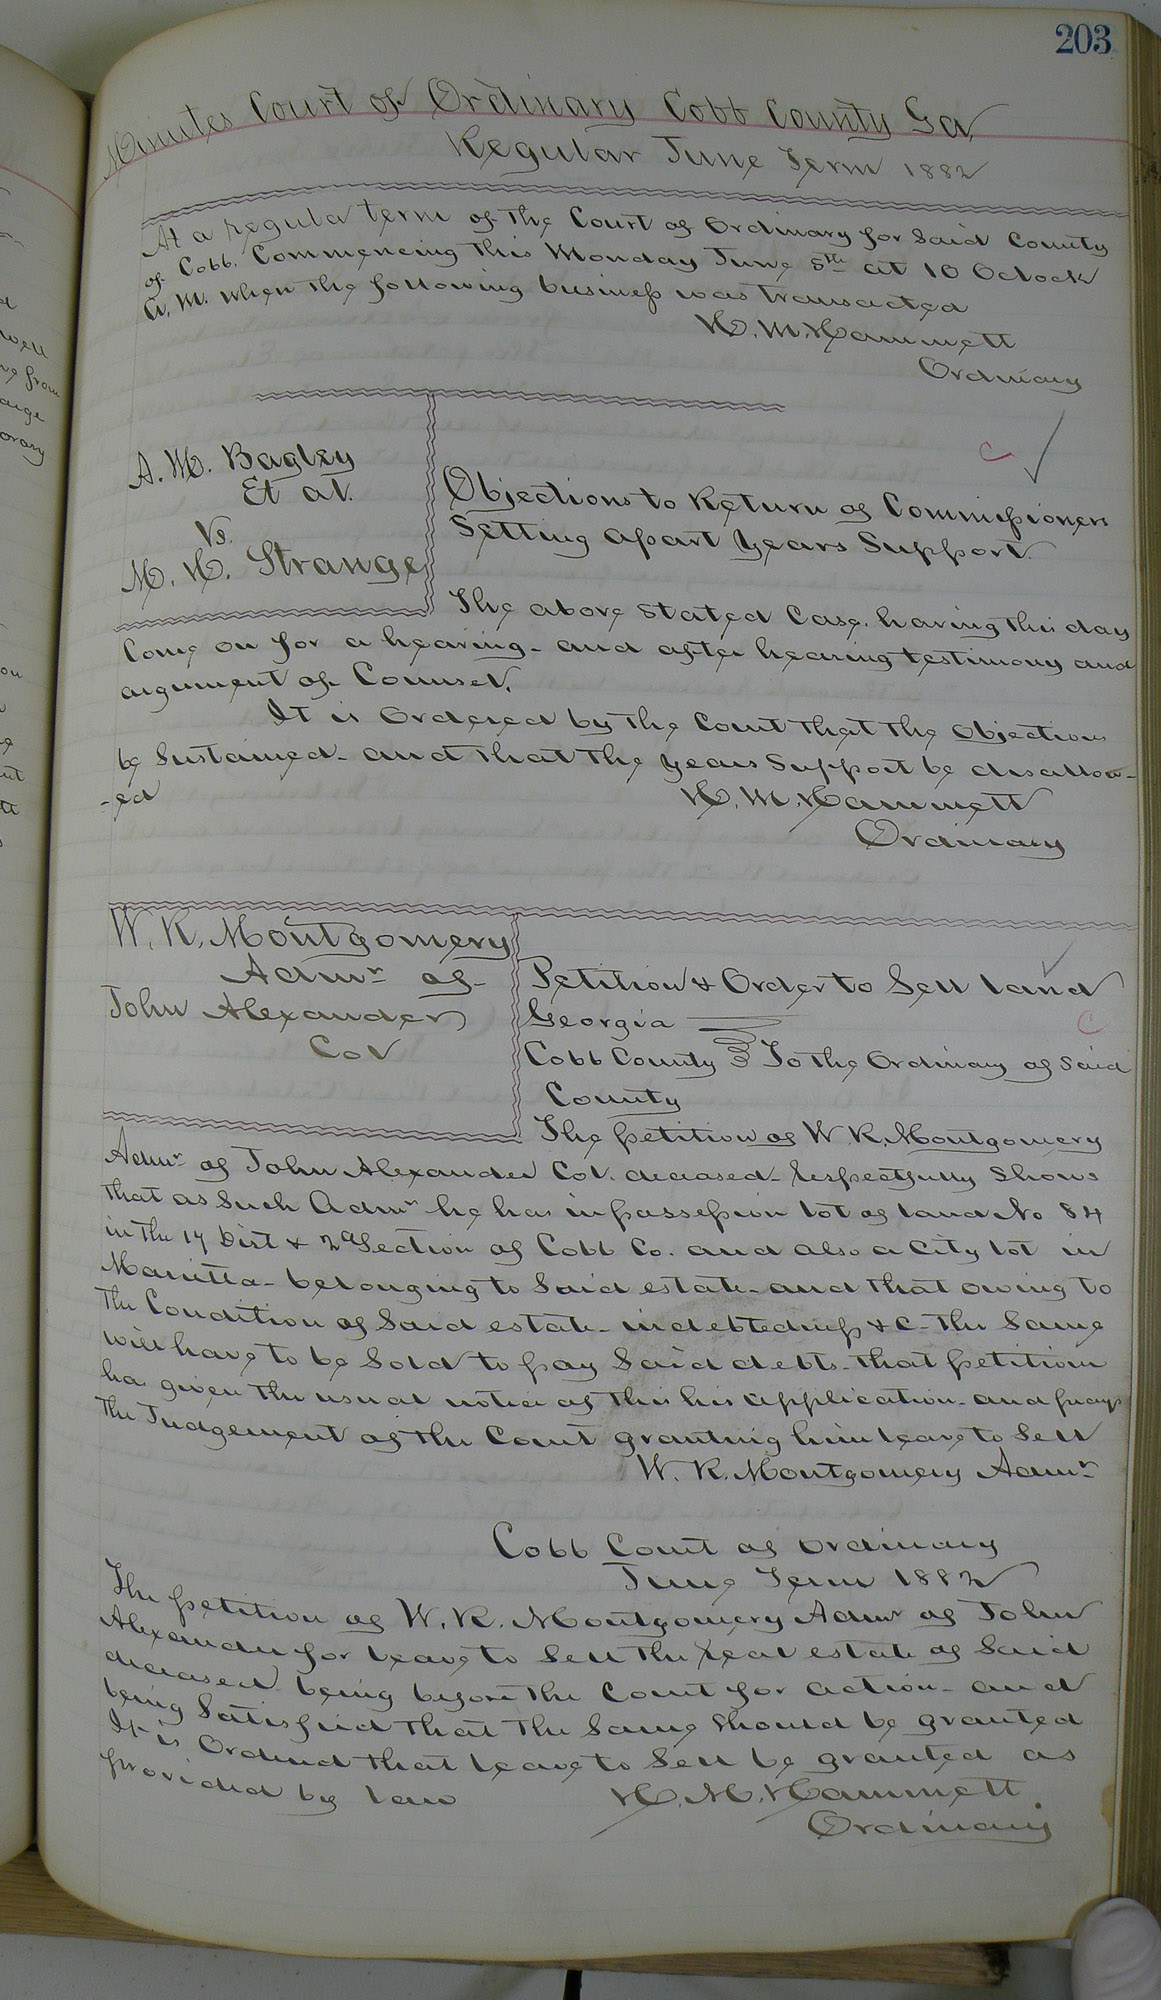 203
Minutes Court of Ordinary Cobb County Ga
Regular June Term 1882
At a regula term of the Court of Ordinary for Said County
of Cobb. Commencing this Monday June 5th at 10 Oclock
A. M. when the following business was transacted
H. M. Hammett
Ordinary
A. M. Bagley
Et al.
Vs.
M. H. Strange
C
Objections to Return of Commissioners
Setting apart Years Support
The above stated Case. having this day
Come on for a hearing - and after hearing testimony and
argument of Counsel,
It is Ordered by the Court that the Objections
be Sustained - and that the years Support be disallow-
-ed
H. M. Hammett
Ordinary
W. R. Montgomery
Admr of
John Alexander
Col
Petition & Order to Sell land
Georgia
C
Cobb County To the Ordinary of said
County
The petition of W R. Montgomery
Admr of John Alexander Col. deceased - respectfully Shows
that as Such Admr he has in possession lot of land No 84
in the 17 Dist & 2d Section of Cobb Co. and also a City lot in
Marietta - belonging to Said estate - and that owing to
the Condition of Said estate - indebtedness &c - the Same
will have to be Sold to pay Said debts - that petition
ha given the usual notice of this his application - and prays
the Judgement of the Court granting him leave to Sell
W. R. Montgomery Admr
Cobb Court of Ordinary
June Term 1882
The petition of W. R. Montgomery Admr of John
Alexander for leave to Sell the real estate of Said
deceased being before the Court for action - and
being Satisfied that the Same Should be granted
It is Ordered that leave to Sell be granted as
provided by law
H. M. Hammett
Ordinary